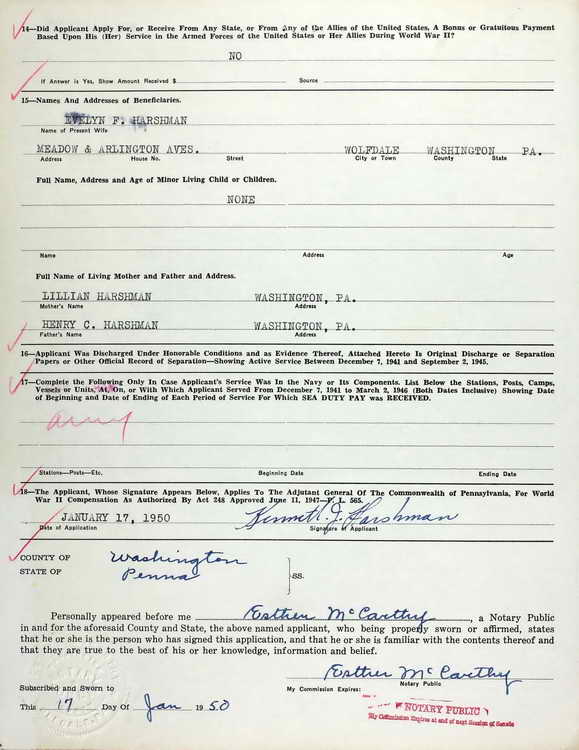 14—Did Applicant Apply For, or Receive From Any State, or From Any of the Allies of the United States, A Bonus or Gratuitous Payment
Based Upon His (Her) Service in the Armed Forces of the United States or Her Allies During World War II?
NO
If Answer is Yes, Show Amount Received $ Source
15—Names And Addresses of Beneficiaries.
EVELYN F. HARSHMAN
Name of Present Wife
MEADOW & ARLINGTON AVES. WOLFDALE WASHINGTON PA.
Address House No. Street City or Town County State
Full Name, Address and Age of Minor Living Child or Children.
NONE
Name Address Age
Full Name of Living Mother and Father and Address.
LILLIAN HARSHMAN WASHINGTON, PA.
Mother's Name Address
HENRY C. HARSHMAN WASHINGTON, PA.
Father's Name Address
16—Applicant Was Discharged Under Honorable Conditions and as Evidence Thereof, Attached Hereto Is Original Discharge or Separation
Papers or Other Official Record of Separation—Showing Active Service Between December 7, 1941 and September 2, 1945.
17—Complete the Following Only In Case Applicant's Service Was In the Navy or Its Components. List Below the Stations, Posts, Camps,
Vessels or Units, At, On, or With Which Applicant Served From December 7, 1941 to March 2, 1946 (Both Dates Inclusive) Showing Date
of Beginning and Date of Ending of Each Period of Service For Which SEA DUTY PAY was RECEIVED.
Army
Stations—Posts—Etc. Beginning Date Ending Date
18—The Applicant, Whose Signature Appears Below, Applies To The Adjutant General Of The Commonwealth of Pennsylvania, For World
War II Compensation As Authorized By Act 248 Approved June 11, 1947—P. L. 565.
JANUARY 17, 1950 Kenneth J. Harshman
Date of Application Signature of Applicant
COUNTY OF Washington
STATE OF Penna SS.
Personally appeared before me Esther McCarthy, a Notary Public
in and for the aforesaid County and State, the above named applicant, who being properly sworn or affirmed, states
that he or she is the person who has signed this application, and that he or she is familiar with the contents thereof and
that they are true to the best of his or her knowledge, information and belief.
Esther McCarthy
Subscribed and Sworn to My Commission Expires: Notary Public
This 17 Day Of Jan 1950
NOTARY PUBLIC
My Commission Expires at end of next Session of Senate